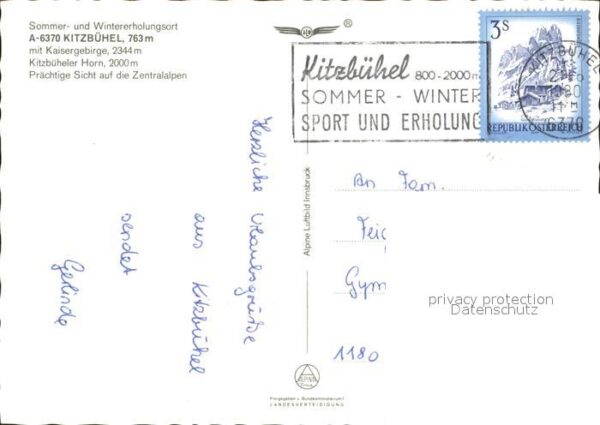 Sommer- und Wintererholungsort
A-6370 KITZBÜHEL, 763 m
mit Kaisergebirge, 2344 m
Kitzbüheler Horn, 2000 m
Prächtige Sicht auf die Zentralalpen
®
Kitzbühel 800-2000m
SOMMER - WINTER
SPORT UND ERHOLUNG
3S
REPUBLIK ÖSTERREICH
KITZBÜHEL
Herzliche Urlaubsgrüße
aus Kitzbühel
sendet
Gerlinde
Alpine Luftbild Innsbruck
An Fam.
Feic
Gym
1180
privacy protection
Datenschutz
Freigegeben v. Bundesministerium f.
LANDESVERTEIDIGUNG